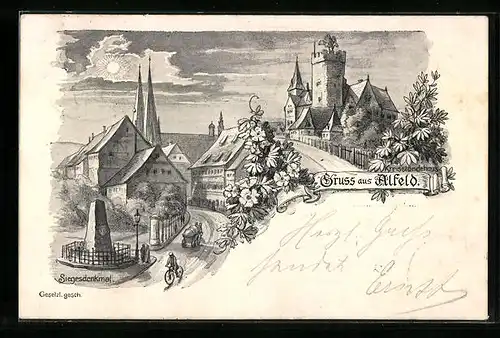 Kriegerdenkmal.
Gruss aus Alfeld.
Siegesdenkmal.
Gesetzl. gesch.
Herzl. Gruß
sendet
Ernst